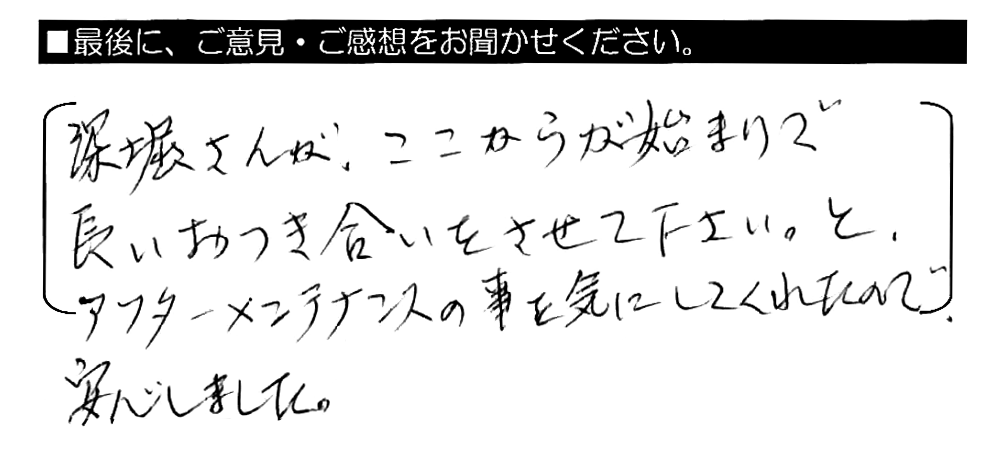 ■最後に、ご意見・ご感想をお聞かせください。
深堀さんが、ここからが始まりで
長いおつき合いをさせて下さい。と、
アフターメンテナンスの事を気にしてくれたので、
安心しました。